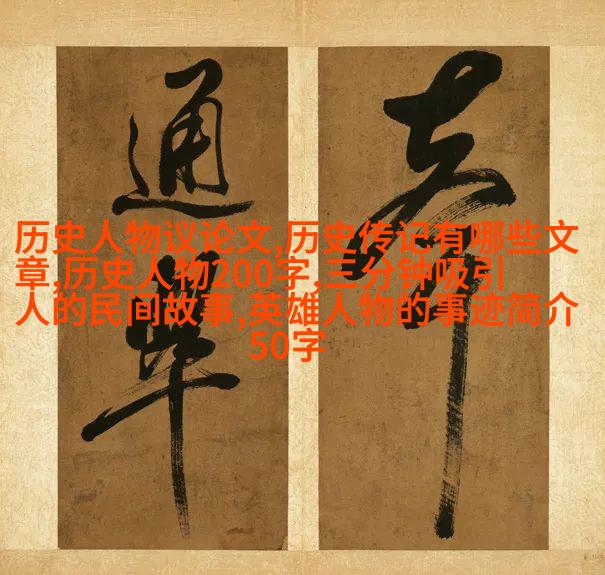 通
历史人物议论文,历史传记有哪些文
章,历史人物200字,三分钟吸引
人的民间故事,英雄人物的事迹简介
50字